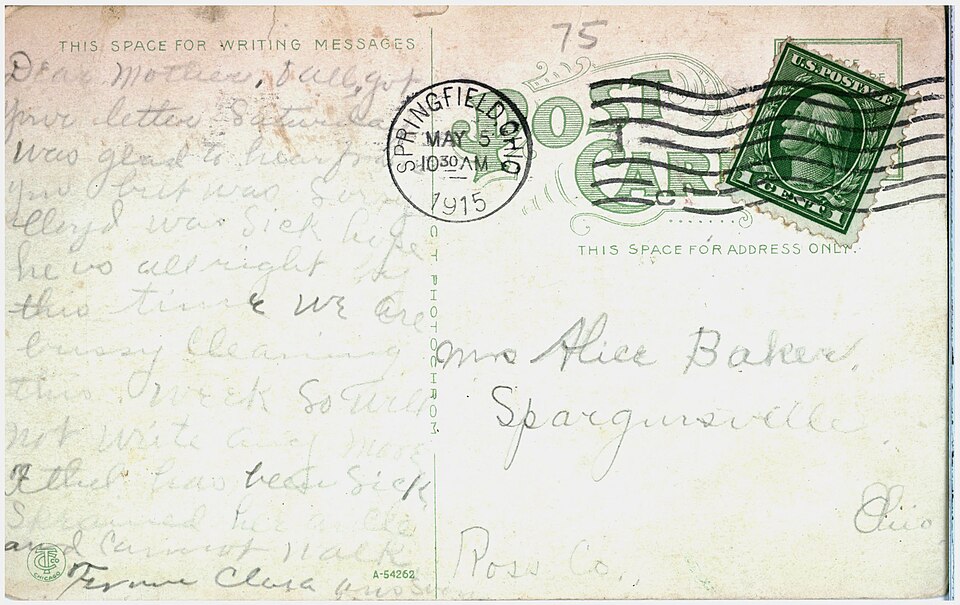 THIS SPACE FOR WRITING MESSAGES
Dear Mother, I all got
your letter Saturda
was glad to hear from
you but was So
Lloyd was Sick hope
he is all right
this time we are
bussy Cleaning
this week So will
not write any more
Ethel has been Sick
Sprained her ancle
and cannot walk
Clara
CT PHOTOCHROM
CHICAGO
A-54262
75
POST
CARD
SPRINGFIELD, OHIO
MAY 5
10 30 AM
1915
U.S. POSTAGE
1 CENT 1
THIS SPACE FOR ADDRESS ONLY.
Mrs Alice Baker,
Spargursville
Ohio
Ross Co.